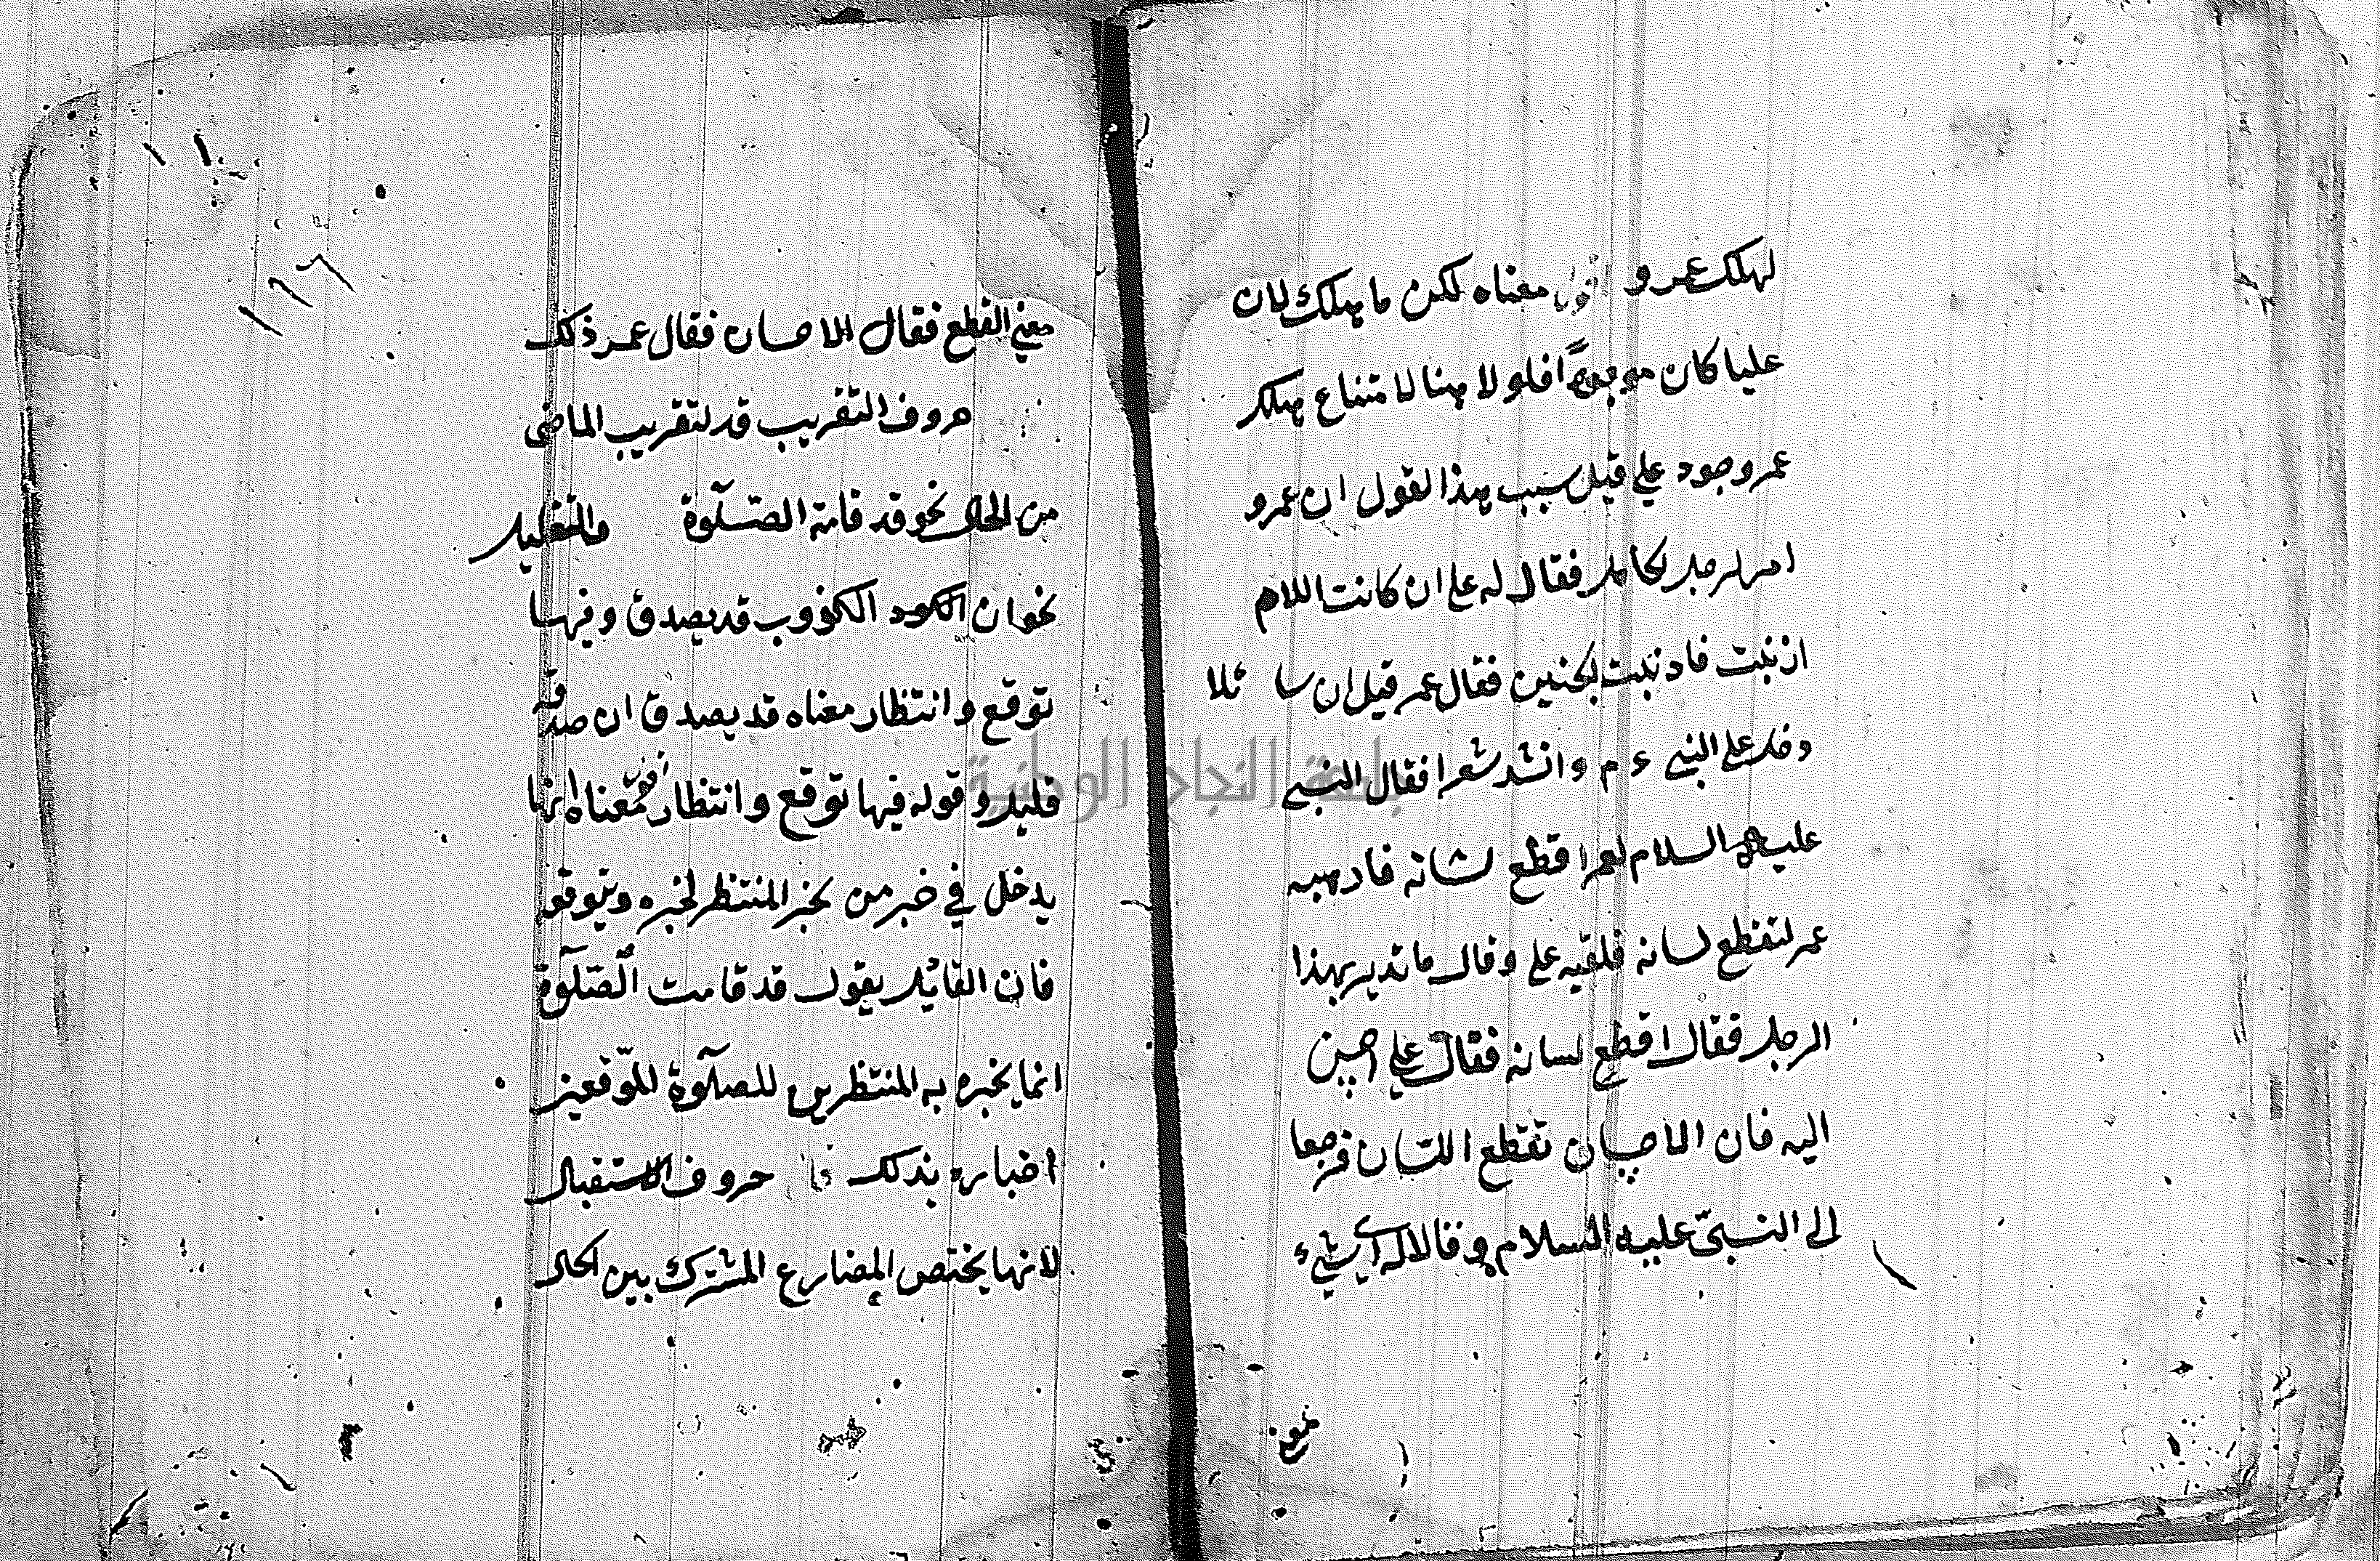 لهلك عمرو معناه لكن ما يهلك لان
عليا كان موجودا فلولا هنا لامتناع يهلك
عمر وجود علي قيل سبب هذا القول ان عمرو
امر لرجل لحامل فقال له علي ان كانت اللام
اذنبت فاذنبت لجنين فقال عمر قيل ان سا ئلا
وفد على النبي ءم وانشد شعرا فقال النبي
عليه السلام لعمر اقطع لسانه فاذهبه
عمر لتقطع لسانه فلقيه علي وقال ما تديربهذا
الرجل فقال اقطع لسانه فقال علي احسن
اليه فان الاحسان تقطع اللسان فرجعا
الى النبيّ عليه السلام وقالا له اي شيء
معني القطع فقال الاحسان فقال عمر ذلك
حروف التقريب قد لتقريب الماضى
من الحال نحو قد قامة الصلوة والتقليل
نحو ان الكذوب قد يصدق وفيها
توقع وانتظار معناه قد يصدق ان صدقه
قليل وقوله فيها توقع وانتظار معناه انها
يدخل في خبر من يخبر المنتظر لخبره ويتوقو
فان القائل يقول قد قامت الصّلوة
انما يخبره به المنتظرين للصلوة المتوقعين
اخباره بذلك حروف الاستقبال
لانها يختص المضارع المشترك بين الحال
جامعة النجاح الوطنية